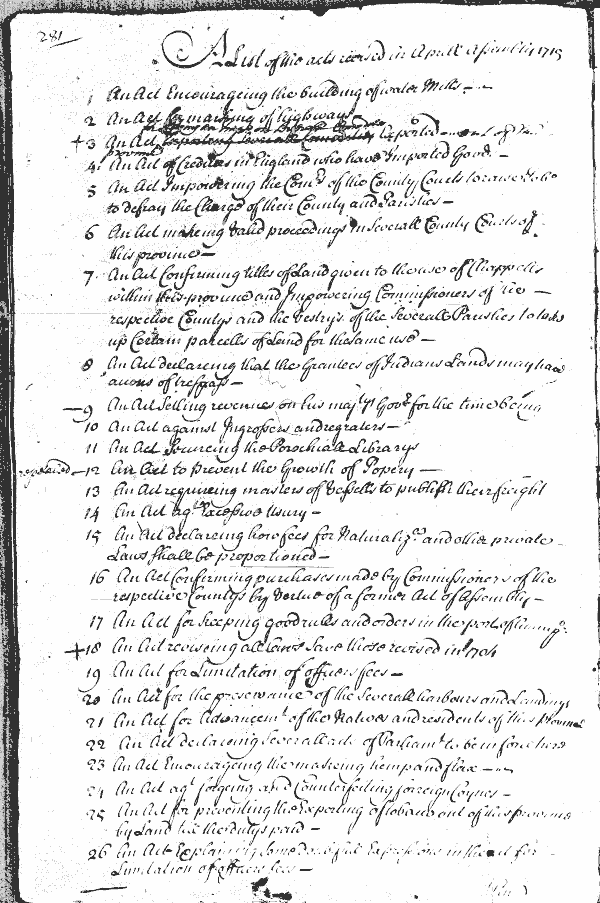 281
A List of the acts revised in Aprill Assembly 1715
1 An Act Encourageing the building of water Mills
2 An Act for marking of highways
+ 3 An Act Exported
4 An Act of Creditors in England who have Imported Goods
5 An Act Impowering the Comrs of the County Courts to raise
to defray the Charge of their County and Parishes
6 An Act making Valid proceedings in Severall County Courts of
this province
7 An Act Confirming titles of Land given to the use of Chappells
within this province and Impowering Commissioners of the
respective Countys and the Vestrys of the Severall Parishes to take
up Certain parcells of Land for the same use
8 An Act declareing that the Grantees of Indians Lands may have
acions of trespass
9 An Act Selling revenues on his majtys Govr for the time being
10 An Act against Ingrossers and regraters
11 An Act Secureing the Parochiall Librarys
repealed 12 An Act to prevent the Growth of Popery
13 An Act requireing masters of Vessells to publish their freight
14 An Act agt Excessive Usury
15 An Act declareing how fees for Naturalizn and other private
Laws shall be proportioned
16 An Act Confirming purchases made by Commissioners of the
respective Countys by Vertue of a former Act of Assembly
17 An Act for keeping good rules and orders in the port of
+ 18 An Act reviseing all laws Save those revised in 1704
19 An Act for Limitation of officers fees
20 An Act for the preservance of the Severall harbours and Landings
21 An Act for Advancemt of the Natives and residents of this Province
22 An Act declareing Severall acts of Parliamt to be in force here
23 An Act Encourageing the makeing hemp and flax
24 An Act agt forgeing and Counterfeiting foreign Coynes
25 An Act for preventing the Exporting of tobacco out of this province
by Land till the dutys paid
26 An Act Explaining Some doubtfull Expressions in the act for
Limitation of officers fees